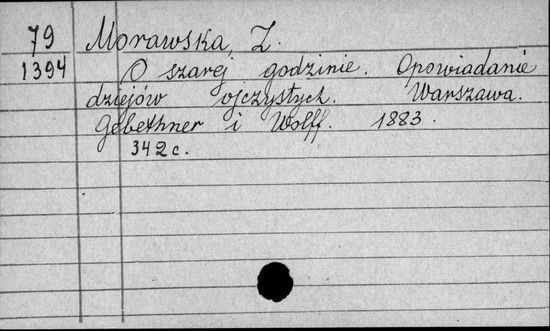 79 Morawska, Z.
1394 O szarej godzinie. Opowiadanie
dziejów ojczystych. Warszawa.
Gebethner i Wolff. 1883.
342 c.